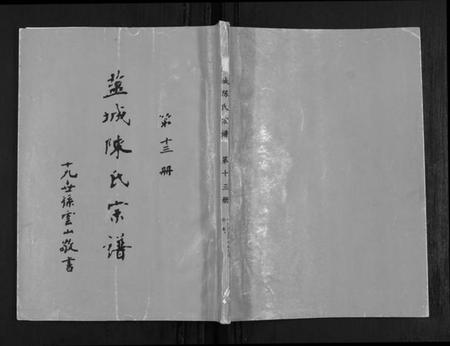 第十三册
盐城陳氏宗譜
十九世孫雲山敬書
城陳氏宗譜 第十三册